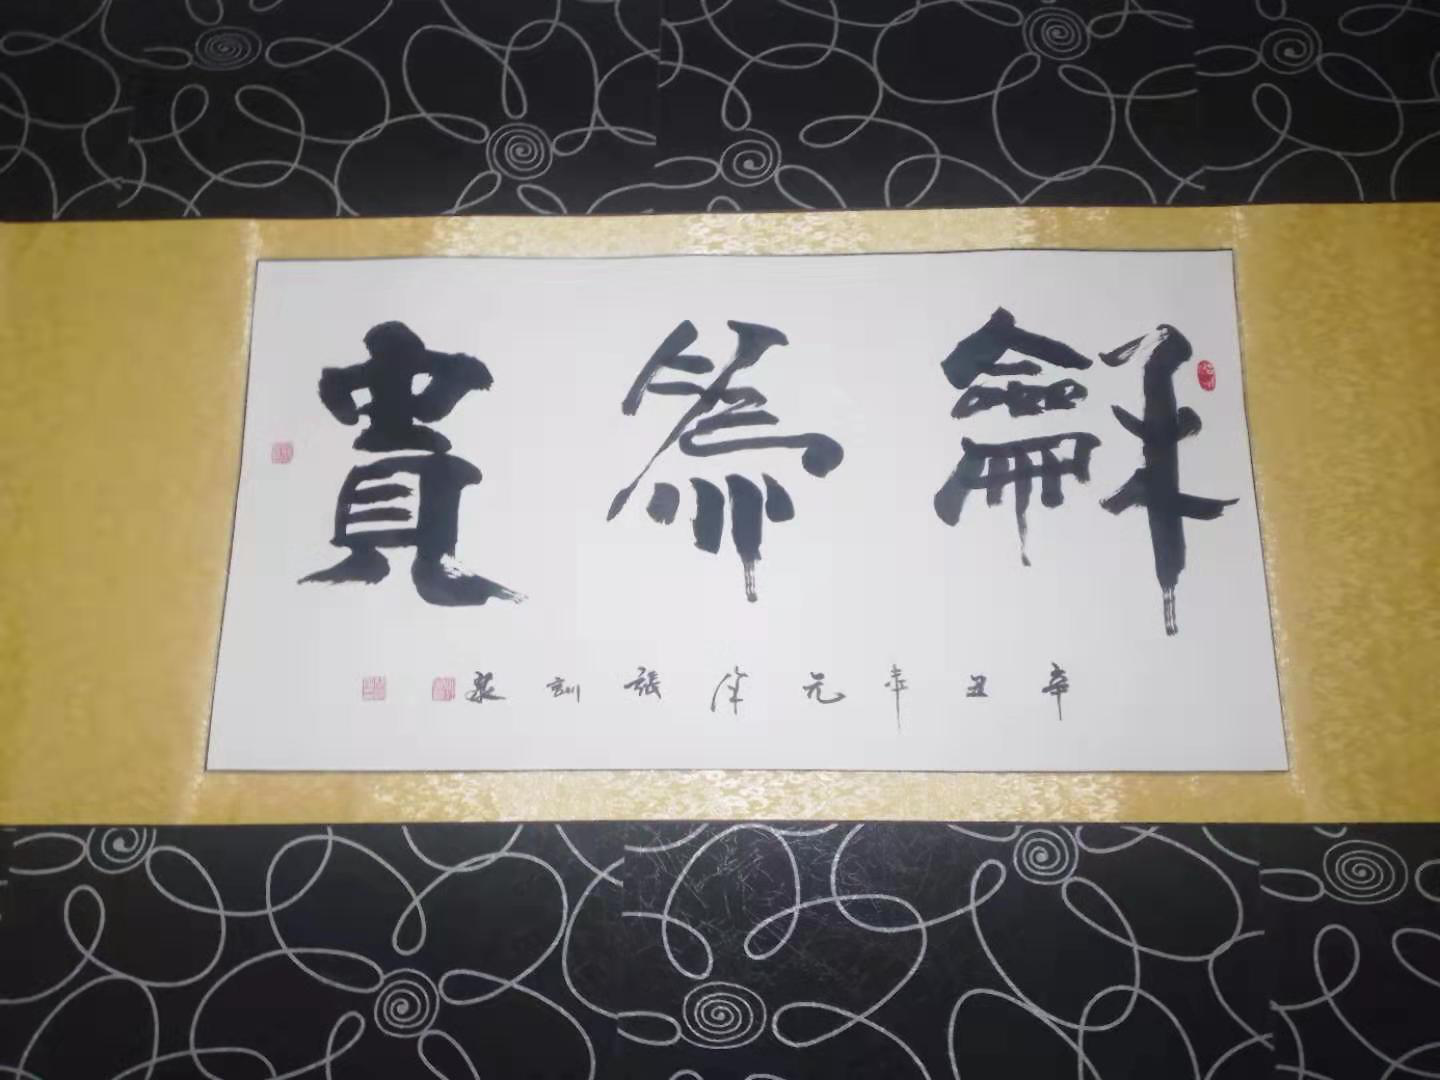 龢為貴
辛丑年元月張訓